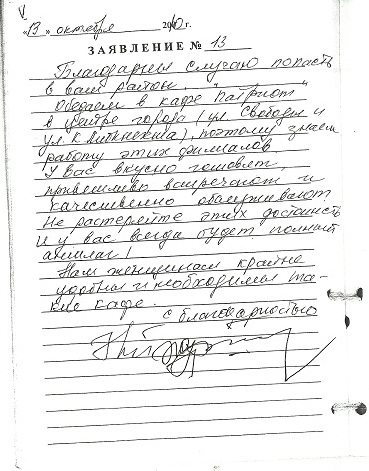 V
«13» октября 2010 г.
ЗАЯВЛЕНИЕ № 13
Благодарны случаю попасть
в ваш район.
Обедаем в кафе "Патриот"
в центре города (ул. Свободы и
ул. К. Либкнехта), поэтому знаем
работу этих филиалов
У вас вкусно готовят,
приветливо встречают и
качественно обслуживают
Не растеряйте этих достоинств
и у вас всегда будет полный
аншлаг!
Нам женщинам крайне
удобны и необходимы та-
кие кафе.
С благодарностью